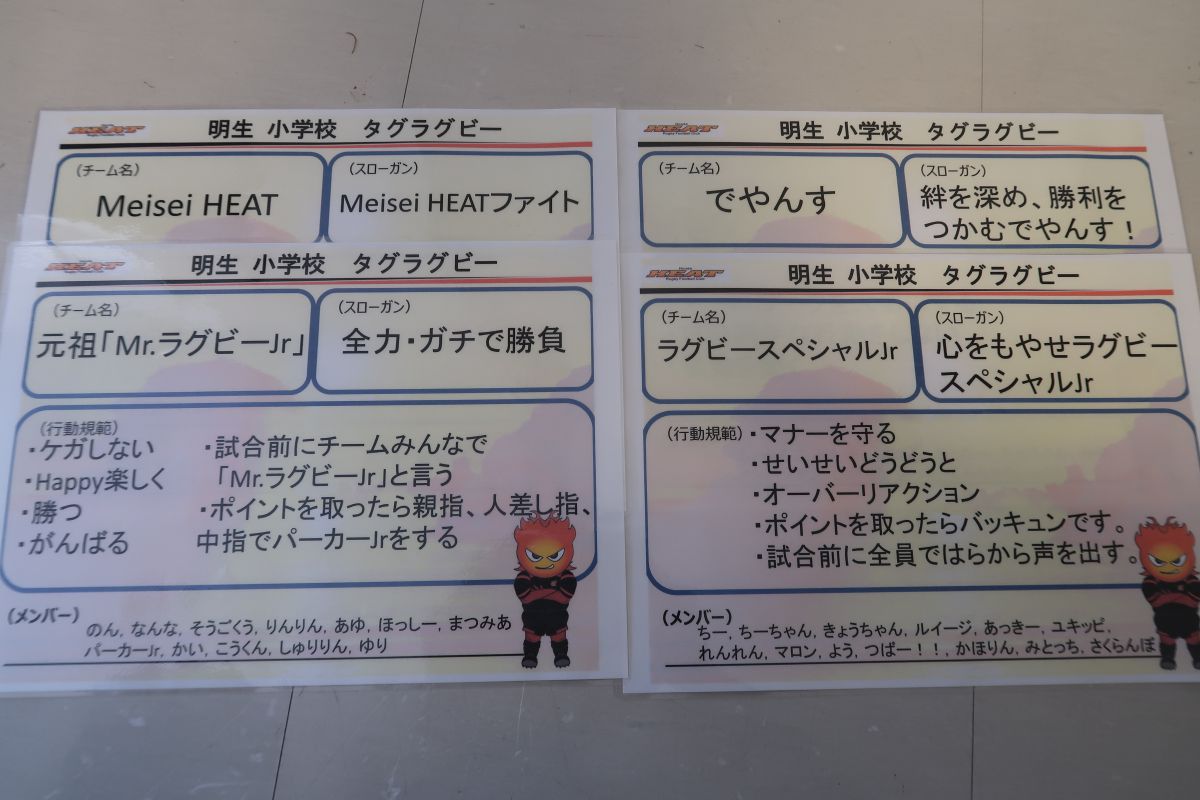 HEAT
明生 小学校 タグラグビー
(チーム名)
Meisei HEAT
(スローガン)
Meisei HEATファイト
HEAT
Rugby Football Club
明生 小学校 タグラグビー
(チーム名)
でやんす
(スローガン)
絆を深め、勝利を
つかむでやんす！
HEAT
明生 小学校 タグラグビー
(チーム名)
元祖「Mr.ラグビーJr」
(スローガン)
全力・ガチで勝負
(行動規範)
・ケガしない
・Happy楽しく
・勝つ
・がんばる
・試合前にチームみんなで
「Mr.ラグビーJr」と言う
・ポイントを取ったら親指、人差し指、
中指でパーカーJrをする
(メンバー)
のん, なんな, そうごくう, りんりん, あゆ, ほっしー, まつみあ
パーカーJr, かい, こうくん, しゅりりん, ゆり
HEAT
Rugby Football Club
明生 小学校 タグラグビー
(チーム名)
ラグビースペシャルJr
(スローガン)
心をもやせラグビー
スペシャルJr
(行動規範)
・マナーを守る
・せいせいどうどうと
・オーバーリアクション
・ポイントを取ったらバッキュンです。
・試合前に全員ではらから声を出す。
(メンバー)
ちー, ちーちゃん, きょうちゃん, ルイージ, あっきー, ユキッピ,
れんれん, マロン, よう, つばー！！, かほりん, みとっち, さくらんぼ